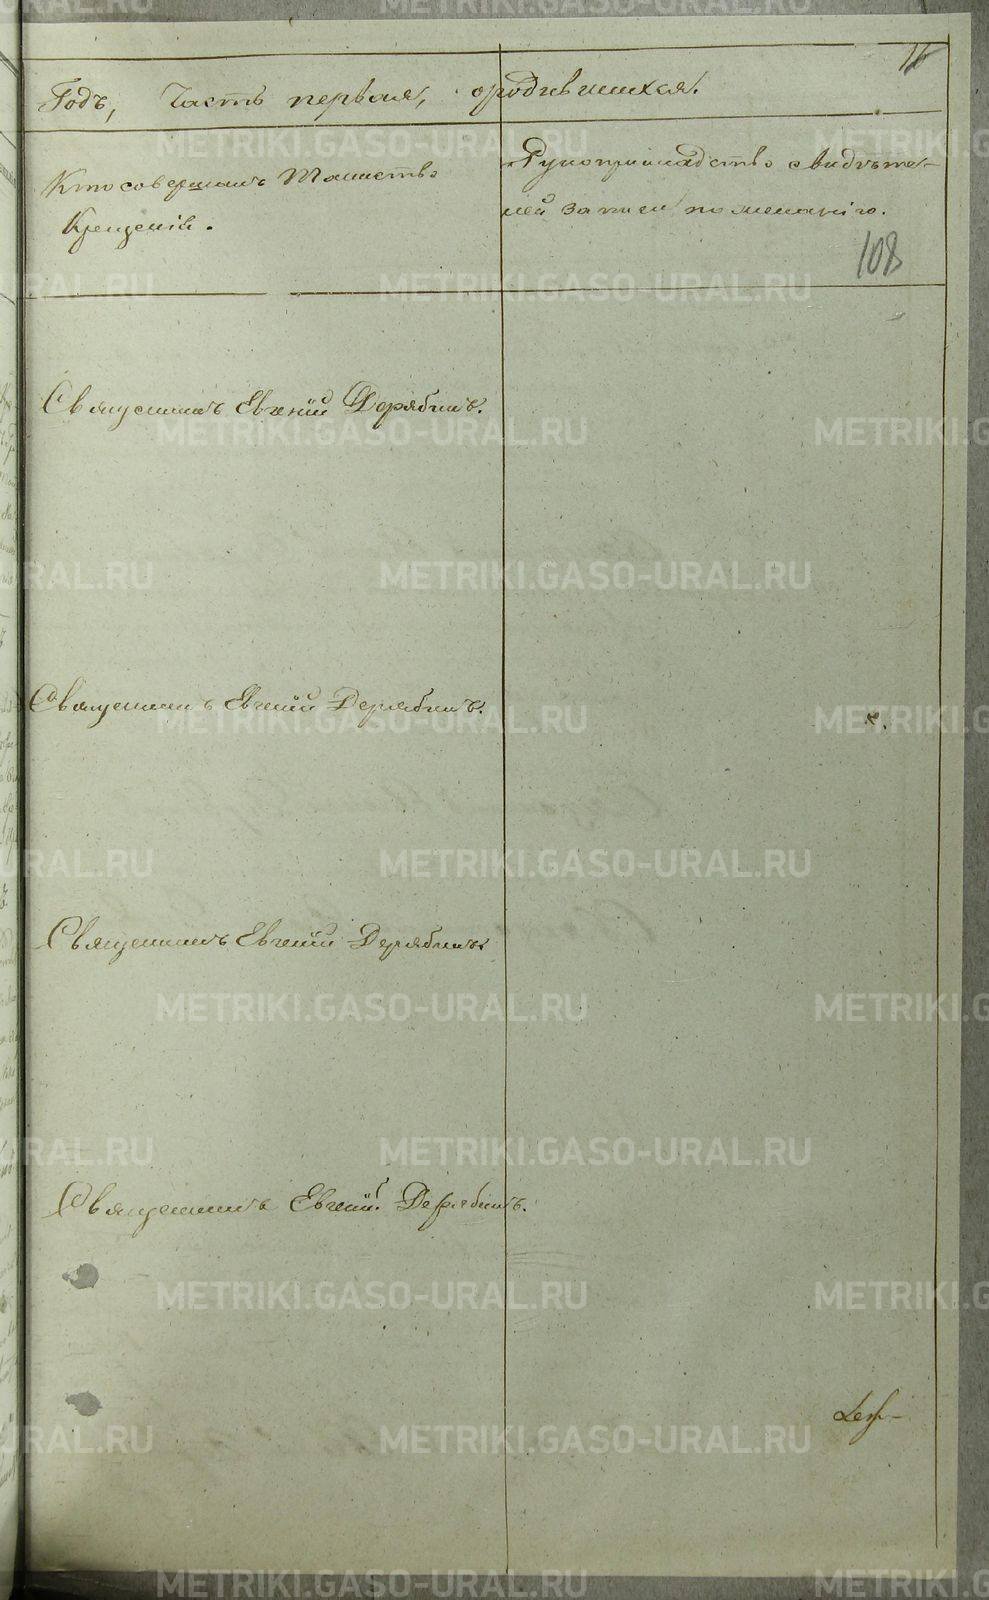 11
Годъ, Часть первая, о родившихся.
Кто совершалъ Таинство
Крещенія.
Рукоприкладство свидѣте-
лей записи по желанію.
108
Священникъ Евгеній Дерябинъ.
Священникъ Евгеній Дерябинъ.
Священникъ Евгеній Дерябинъ.
Священникъ Евгеній Дерябинъ.
METRIKI.GASO-URAL.RU